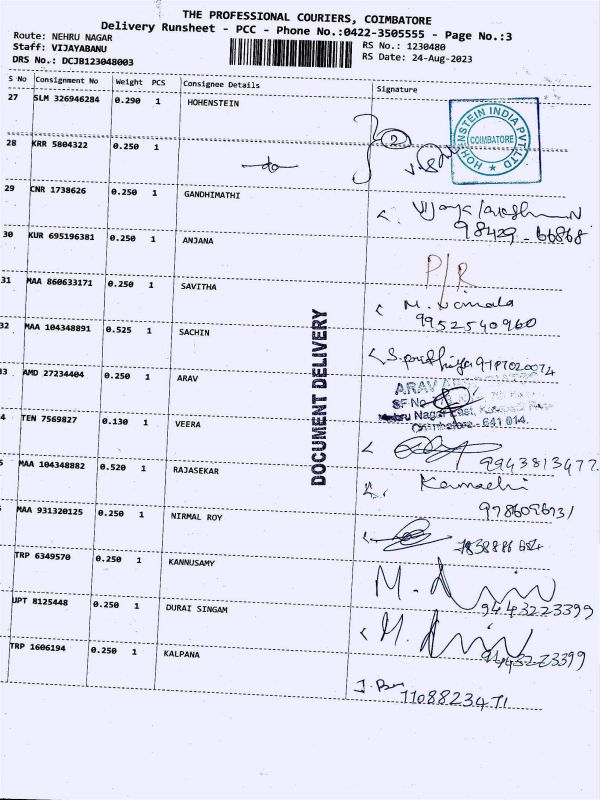 THE PROFESSIONAL COURIERS, COIMBATORE
Delivery Runsheet - PCC - Phone No.:0422-3505555 - Page No.:3
Route: NEHRU NAGAR
Staff: VIJAYABANU
DRS No.: DCJB123048003
RS No.: 1230480
RS Date: 24-Aug-2023
S No Consignment No Weight PCS Consignee Details Signature
27 SLM 326946284 0.290 1 HOHENSTEIN
HOHENSTEIN INDIA PVT. LTD
COIMBATORE
28 KRR 5804322 0.250 1 —do—
29 CNR 1738626 0.250 1 GANDHIMATHI
98429-66868
30 KUR 695196381 0.250 1 ANJANA P/R
31 MAA 860633171 0.250 1 SAVITHA M. Vimala
9952540960
32 MAA 104348891 0.525 1 SACHIN
33 AMD 27234404 0.250 1 ARAV
ARAV
SF No
Nehru Nagar East,
Coimbatore - 641 014.
4 TEN 7569827 0.130 1 VEERA
9943813477
5 MAA 104348882 0.520 1 RAJASEKAR Kamachi
9786096731
MAA 931320125 0.250 1 NIRMAL ROY
TRP 6349570 0.250 1 KANNUSAMY
9443223399
UPT 8125448 0.250 1 DURAI SINGAM
9443223399
TRP 1606194 0.250 1 KALPANA
DOCUMENT DELIVERY